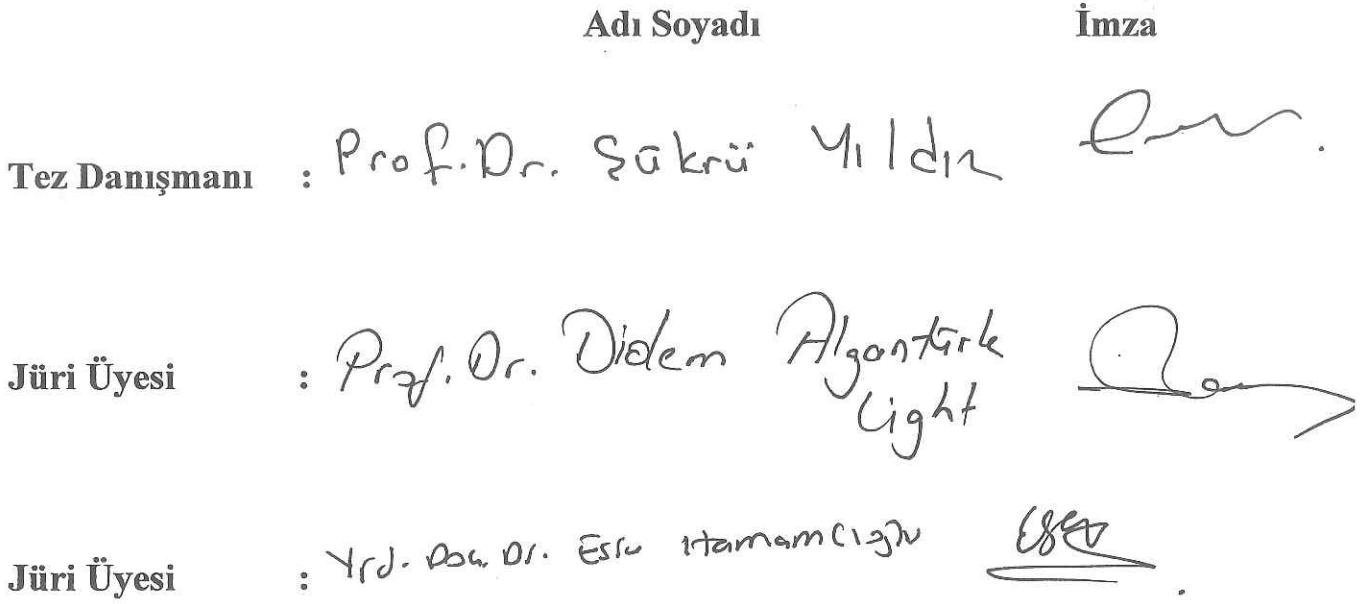 Adı Soyadı İmza
Tez Danışmanı : Prof. Dr. Şükrü Yıldız
Jüri Üyesi : Prof. Dr. Didem Algantürk
Light
Jüri Üyesi : Yrd. Doç. Dr. Esra Hamamcıoğlu